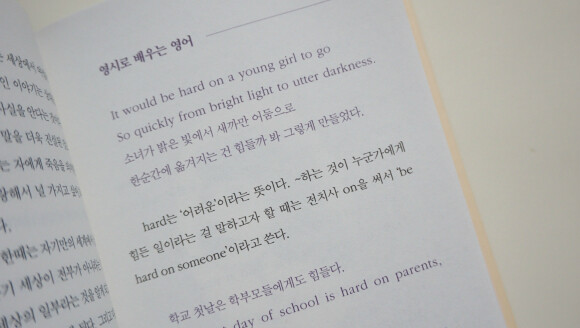 세상에서
인 이야기는
사실을 안다는
말을 더욱
는 자에게 죽음을
해서 널 가지고
다.
한때는 자기만의
기 세상이 전부가 아니라는
세상의 일부라는 것을
영시로 배우는 영어
It would be hard on a young girl to go
So quickly from bright light to utter darkness.
소녀가 밝은 빛에서 새까만 어둠으로
한순간에 옮겨지는 건 힘들까 봐 그렇게 만들었다.
hard는 '어려운'이라는 뜻이다. ~하는 것이 누군가에게
힘든 일이라는 걸 말하고자 할 때는 전치사 on을 써서 'be
hard on someone'이라고 쓴다.
학교 첫날은 학부모들에게도 힘들다.
day of school is hard on parents,